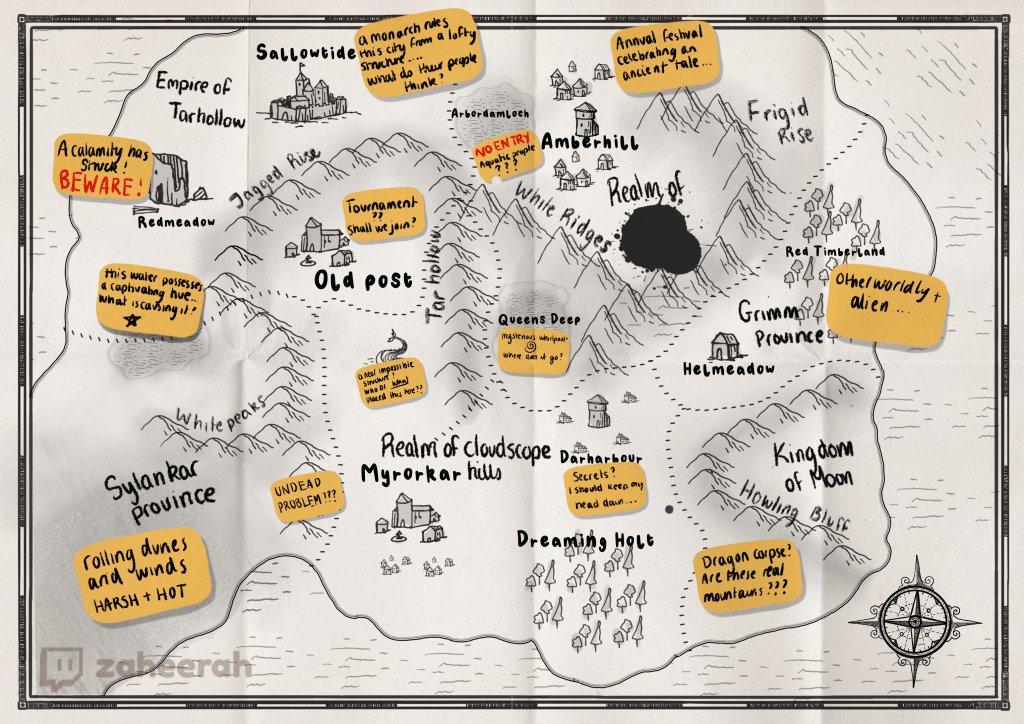 Sallowtide
a monarch rules
this city from a lofty
structure....
what do their people
think?
Annual festival
celebrating an
ancient tale...
Empire of
Tarhollow
Arbordamloch
Frigid
Rise
NO ENTRY
Aquatic people
???
Amberhill
A calamity has
struck!
BEWARE!
Jagged Rise
Redmeadow
White Ridges
Realm of
Tournament
??
Shall we join?
Old post
Tarhollow
Red Timberland
this water possesses
a captivating hue..
what is causing it?
Otherworldly +
alien....
Queens Deep
mysterious whirlpool
where does it go?
Grimm
Province
Helmeadow
a real impossible
structure?
who or what
placed this here??
Whitepeaks
Realm of Cloudscope
Myrorkar hills
Darharbour
Kingdom
of Moon
Sylankar
province
UNDEAD
PROBLEM!??
Secrets?
i should keep my
head down...
Howling Bluff
Dreaming Holt
rolling dunes
and winds
HARSH + HOT
Dragon corpse?
Are these real
mountains???
zaheerah